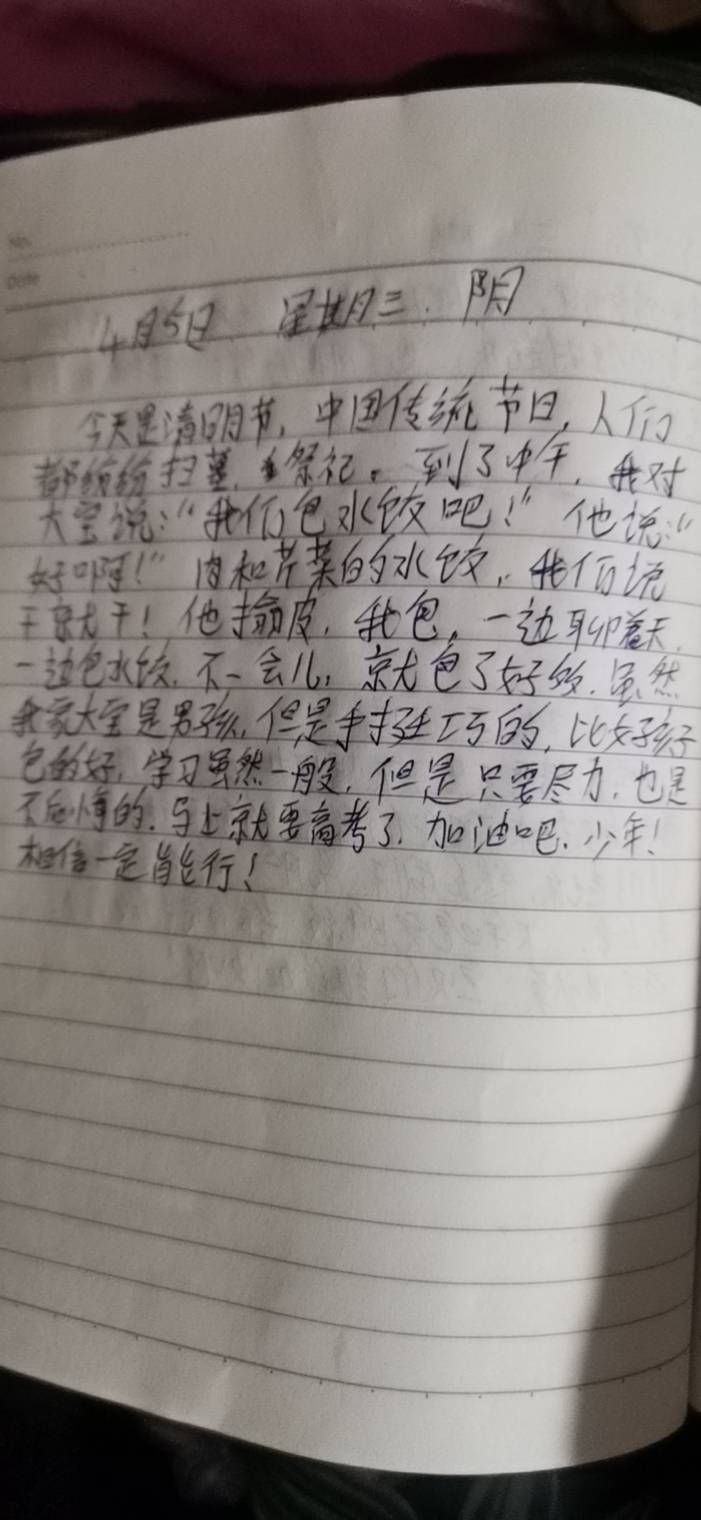 No.
Date
4月5日 星期三. 阴
今天是清明节, 中国传统节日, 人们
都纷纷扫墓, 祭祀。到了中午, 我对
大宝说:“我们包水饺吧!” 他说:“
好啊!” 肉和芹菜的水饺, 我们说
干就干! 他擀皮, 我包, 一边聊着天,
一边包水饺, 不一会儿, 就包了好多, 虽然
我家大宝是男孩, 但是手挺巧的, 比女孩子
包的好, 学习虽然一般, 但是只要尽力, 也是
不后悔的, 马上就要高考了, 加油吧, 少年!
相信一定能行!